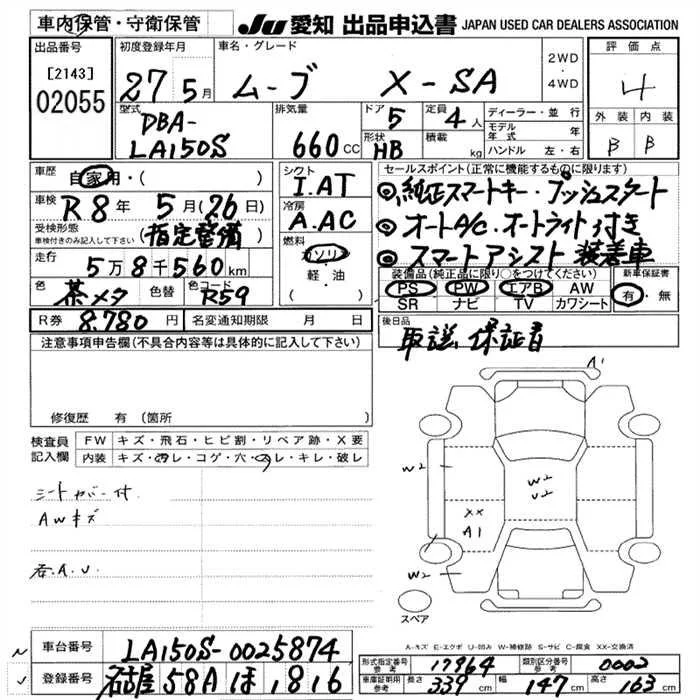 車内保管・守衛保管
JU 愛知 出品申込書 JAPAN USED CAR DEALERS ASSOCIATION
出品番号
[2143]
02055
初度登録年月
27 5月
車名・グレード
ムーブ X-SA
2WD
・
4WD
評価点
4
外装 内装
B B
型式
DBA-
LA150S
排気量
660 CC
ドア 5
形状 HB
定員 4人
積載 kg
ディーラー・並行
モデル年式 年
ハンドル 左・右
車歴
自家用・( )
車検
R8年 5月(26日)
受検形態
車検付きのみ記入して下さい
(指定整備)
走行
5万8千560km
色
茶メタ
色替
色コード
R59
シフト
I.AT
冷房
A.AC
燃料
ガソリン
軽・油
( )
セールスポイント(正常に機能するものに限ります)
◎純正スマートキー・プッシュスタート
◎オートA/C・オートライト付き
◎スマートアシスト装着車
装備品(純正品に限り○をつけてください)
PS PW エアB AW
SR ナビ TV カワシート
新車保証書
有・無
R券 8,780円
名変通知期限 月 日
後日品
取説 保証書
注意事項申告欄(不具合内容等は具体的に記入して下さい)
修復歴 有(箇所
検査員
記入欄
FW キズ・飛石・ヒビ割・リペア跡・X要
内装 キズ・ヨゴレ・コゲ・穴・スレ・キレ・破レ
シートカバー付
AWキズ
A1
W2
W2
U2
XX
A1
W2
スペア
A-キズ E-エクボ U-凹み W-補修跡 S-サビ C-腐食 XX-交換済
車台番号 LA150S-0025874
登録番号 名古屋 58A ほ 1816
形式指定番号
参考
17964
類別区分番号
参考
0002
車庫証明用
参考
長さ 339cm 幅 147cm 高さ 163cm